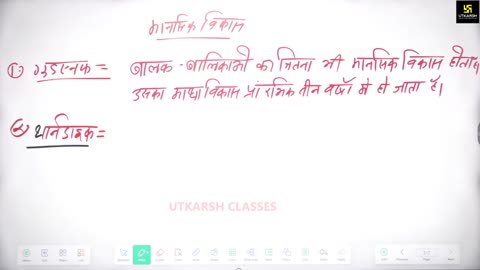 UTKARSH
CLASSES
मानसिक विकास
① गुडएनफ = बालक - बालिकाओं का जितना भी मानसिक विकास होता है
उसका आधा विकास प्रारंभिक तीन वर्षों में हो जाता है।
② थार्नडाइक =
UTKARSH CLASSES